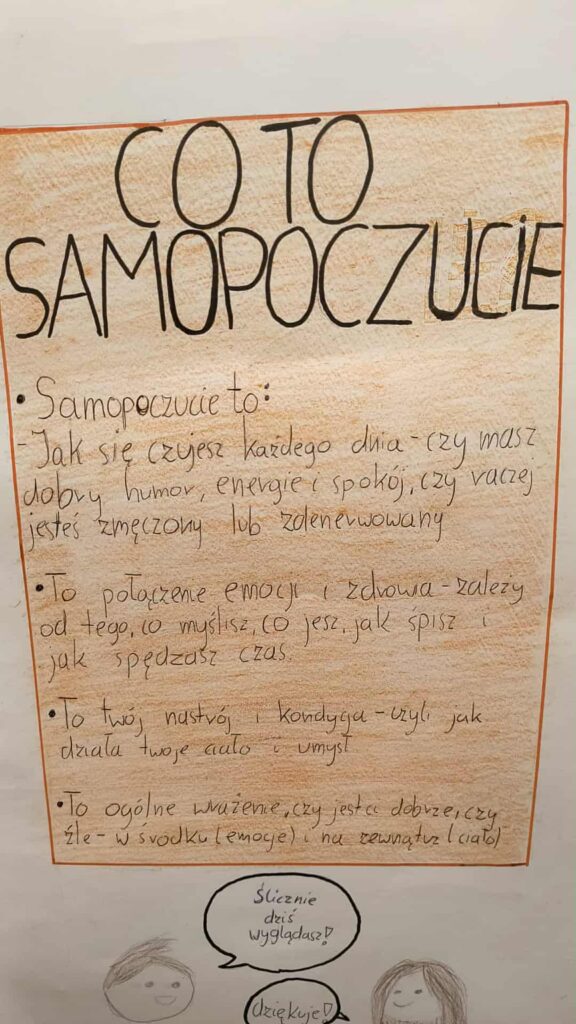 CO TO
SAMOPOCZUCIE
• Samopoczucie to:
-Jak się czujesz każdego dnia - czy masz
dobry humor, energie i spokój, czy raczej
jesteś zmęczony lub zdenerwowany
• To połączenie emocji i zdrowia - zależy
od tego, co myślisz, co jesz, jak śpisz i
jak spędzasz czas.
• To twój nastrój i kondycja - czyli jak
działa twoje ciało i umysł
• To ogólne wrażenie, czy jest ci dobrze, czy
źle - w środku (emocje) i na zewnątrz (ciało)
Ślicznie
dziś
wyglądasz!
dziękuje!